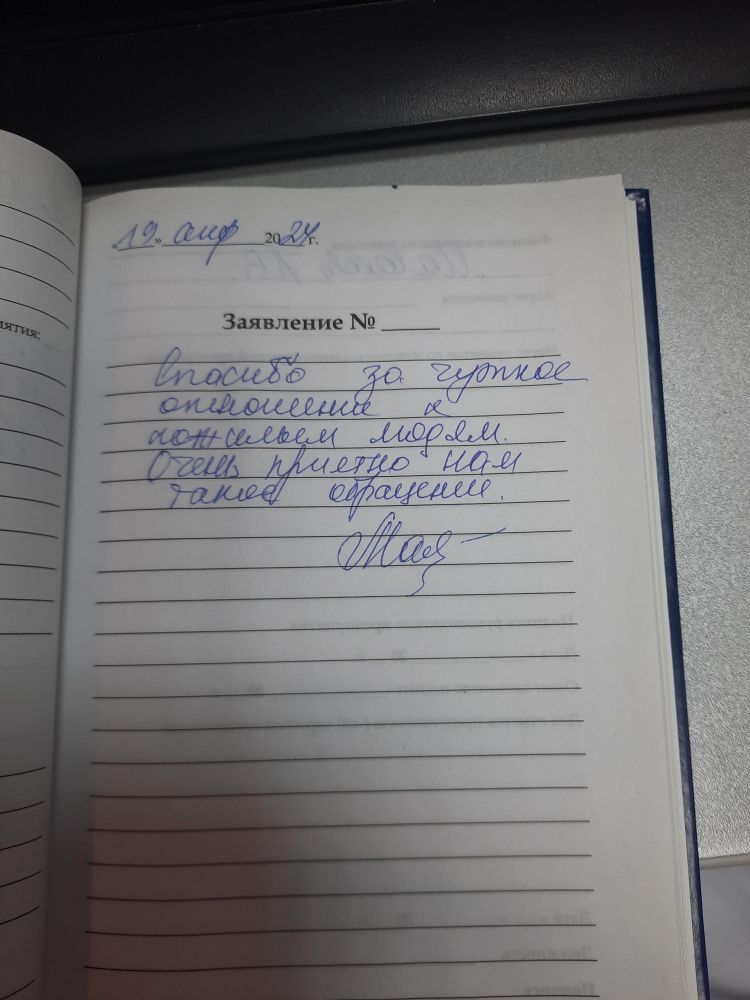 иятия:
«19» апр 2024 г.
Заявление №
Спасибо за чуткое
отношение к
пожилым людям.
Очень приятно нам
такое обращение.